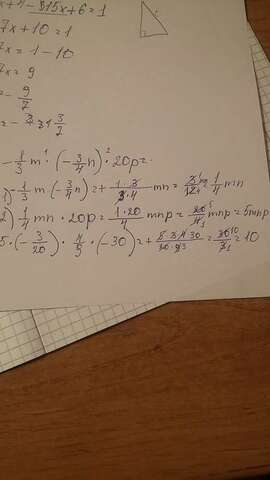 x+4-3,15x+6=1
7x+10=1
7x=1-10
7x=9
-9/7
=-
-1/3 m · (-3/4 n) · 20p=
1) -1/3 m (-3/4 n)=+ 1·3/3·4 mn = 3/12 = 1/4 mn
2) 1/4 mn · 20p = 1·20/4 mnp = 20/4 mnp = 5mnp
5·(-3/20) · 4/9 · (-30)=+ 5·3·4·30/20·9 = 30/3 = 10